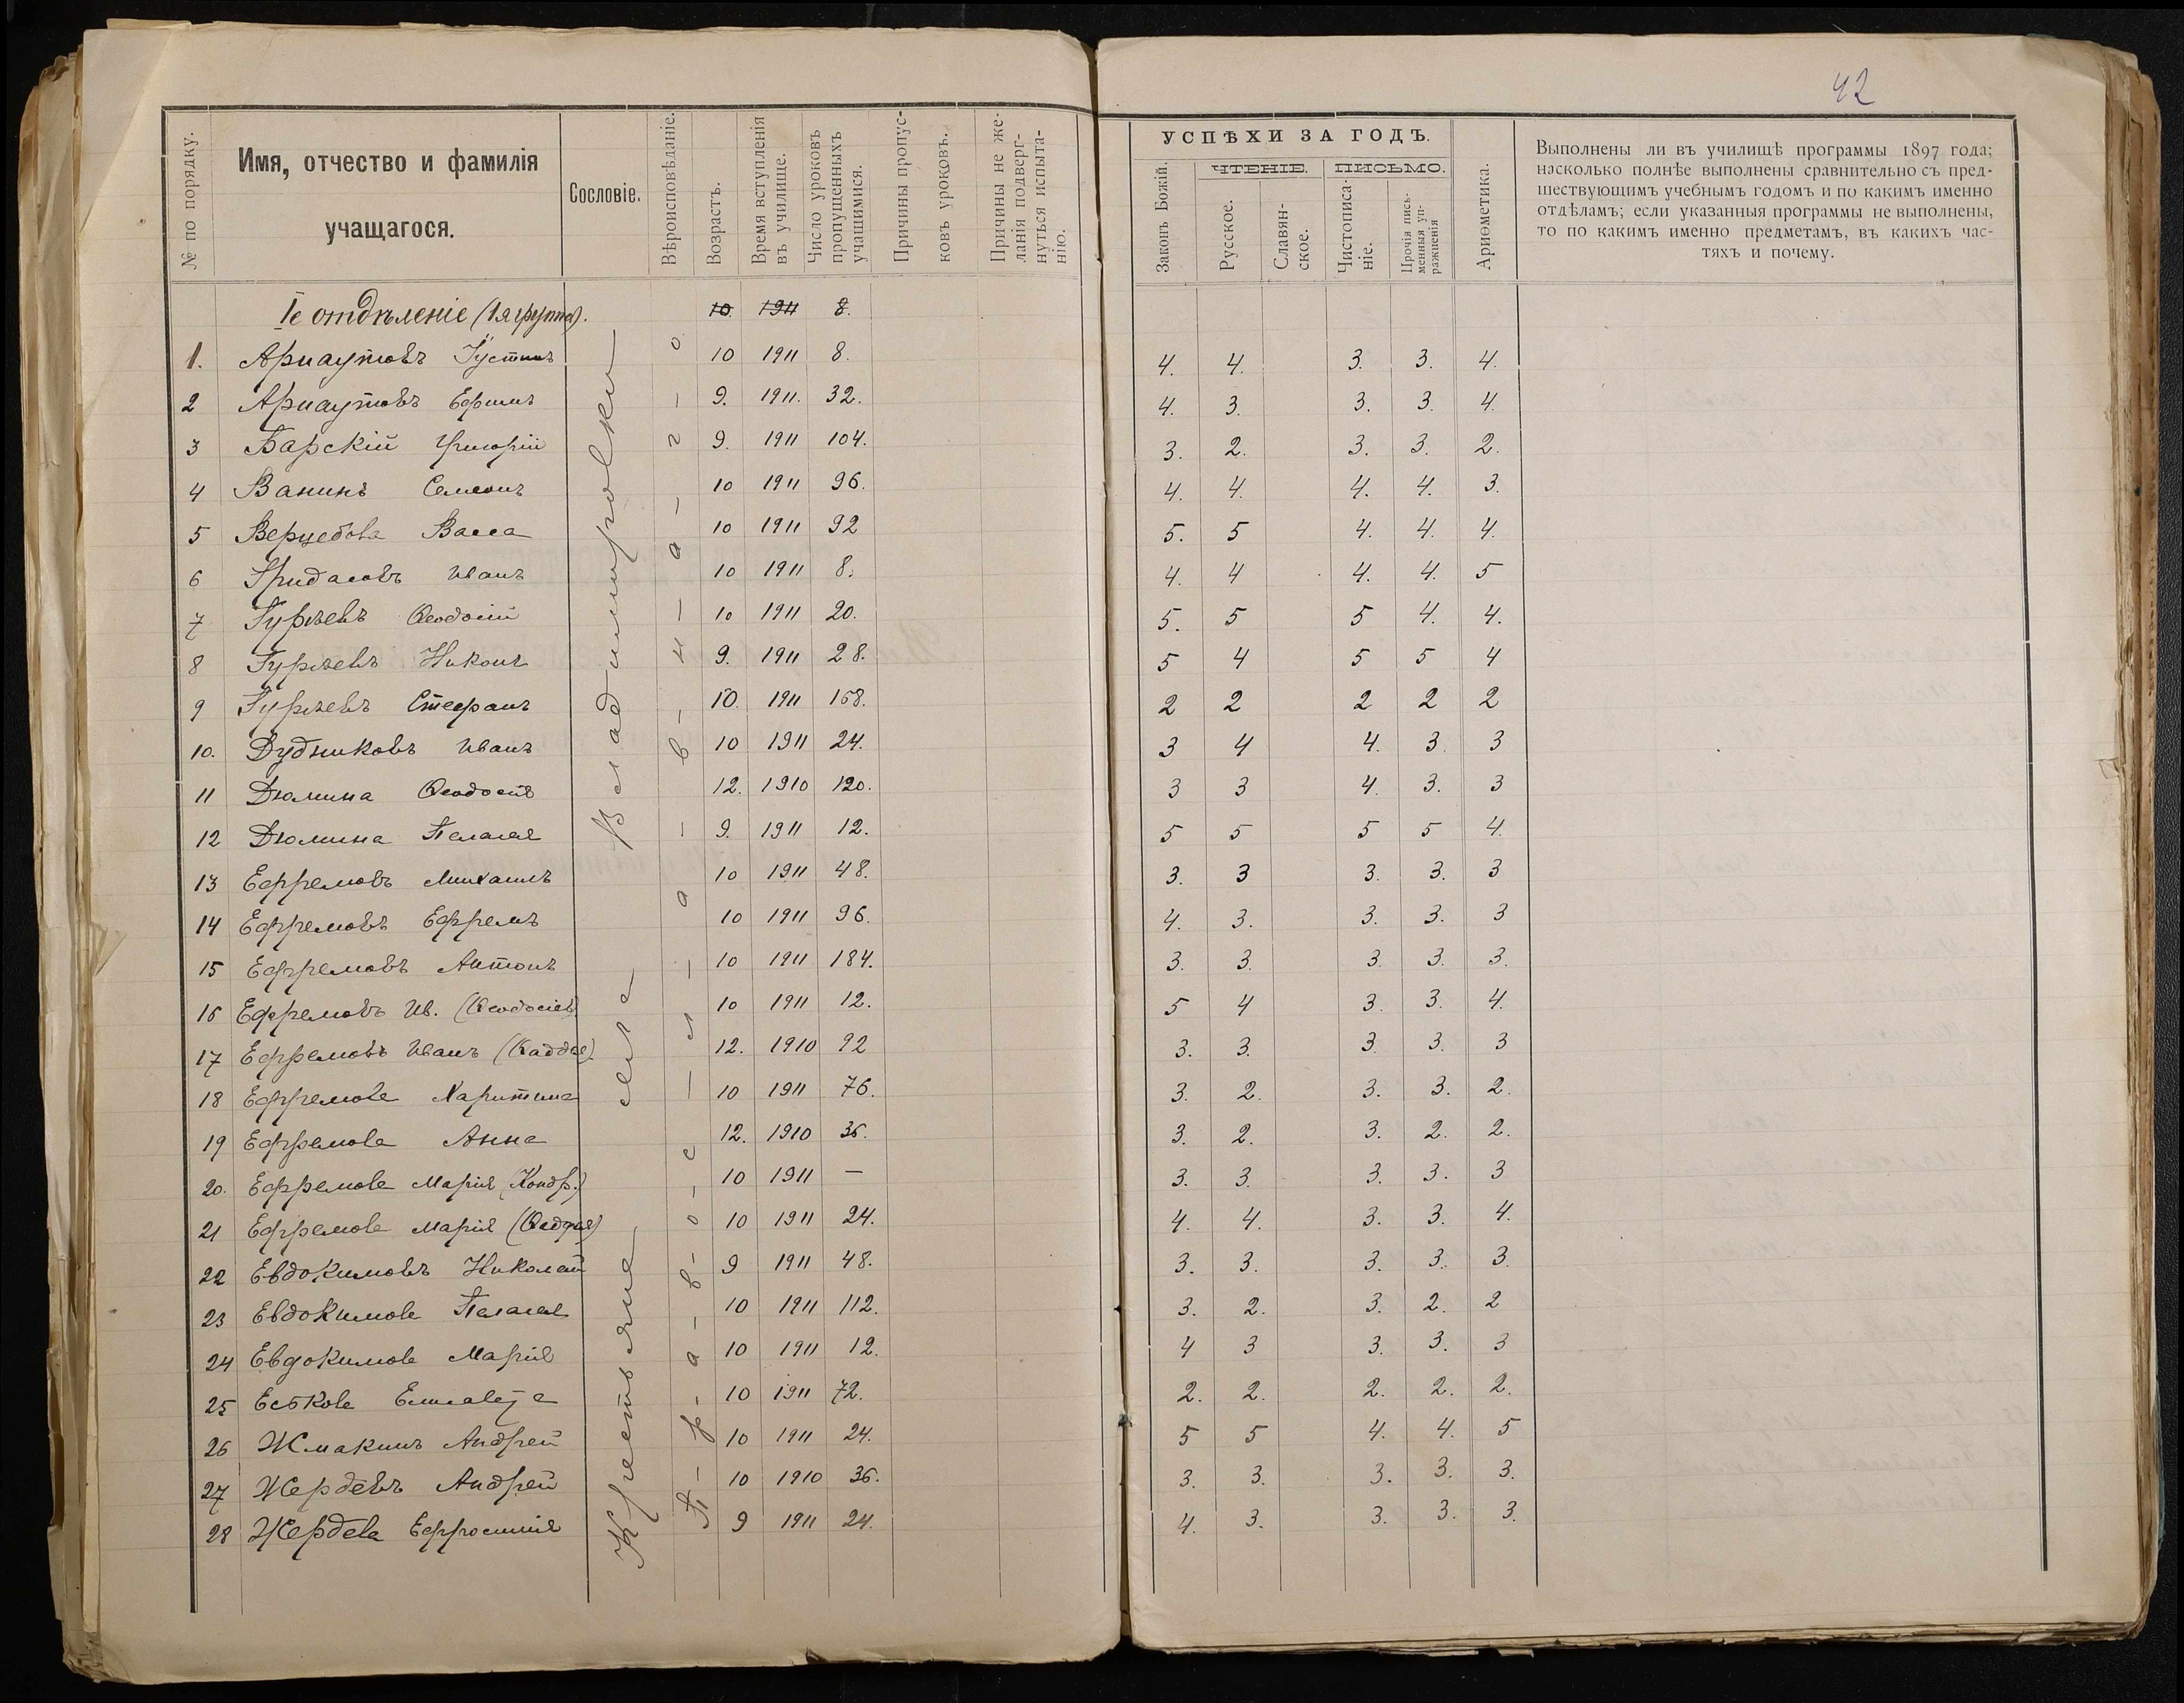 42
№ по порядку.
Имя, отчество и фамилія
учащагося.
Сословіе.
Вѣроисповѣданіе.
Возрастъ.
Время вступленія
въ училище.
Число уроковъ
пропущенныхъ
учащимися.
Причины пропус-
ковъ уроковъ.
Причины не же-
ланія подверг-
нуться испыта-
нію.
УСПѢХИ ЗА ГОДЪ.
Законъ Божій.
ЧТЕНІЕ.
Русское.
Славян-
ское.
ПИСЬМО.
Чистописа-
ніе.
Прочія пись-
менныя уп-
ражненія
Ариѳметика.
Выполнены ли въ училищѣ программы 1897 года;
насколько полнѣе выполнены сравнительно съ пред-
шествующимъ учебнымъ годомъ и по какимъ именно
отдѣламъ; если указанныя программы не выполнены,
то по какимъ именно предметамъ, въ какихъ час-
тяхъ и почему.
Iе отдѣленіе (1я группа). 10 1911 8.
Крестьяне села Владимировки
П-р-а-в-о-с-л-а-в-н-а-г-о
1. Арнаутовъ Іустинъ 10 1911 8. 4. 4. 3. 3. 4.
2 Арнаутовъ Ефимъ 9. 1911. 32. 4. 3. 3. 3. 4.
3 Барскій Григорій 9. 1911 104. 3. 2. 3. 3. 2.
4 Ванинъ Семеонъ 10 1911 96. 4. 4. 4. 4. 3.
5 Верцебова Васса 10 1911 92 5. 5 4. 4. 4.
6 Гридасовъ Иванъ 10 1911 8. 4. 4 4. 4. 5
7 Гурѣевъ Ѳеодосій 10 1911 20. 5. 5 5 4. 4.
8 Гурѣевъ Никонъ 9. 1911 28. 5 4 5 5 4
9 Гурѣевъ Стефанъ 10. 1911 158. 2 2 2 2 2
10. Дудниковъ Иванъ 10 1911 24. 3 4 4. 3. 3
11 Дюмина Ѳеодосія 12. 1910 120. 3 3 4. 3. 3
12 Дюмина Пелагея 9. 1911 12. 5 5 5 5 4.
13 Ефремовъ Михаилъ 10 1911 48. 3. 3 3. 3. 3
14 Ефремовъ Ефремъ 10 1911 96. 4. 3. 3. 3. 3
15 Ефремовъ Антонъ 10 1911 184. 3. 3. 3. 3. 3.
16 Ефремовъ Ив. (Ѳеодосіев) 10 1911 12. 5 4 3. 3. 4.
17 Ефремовъ Иванъ (Ѳаддее). 12. 1910 92 3. 3. 3. 3. 3
18 Ефремова Харитина 10 1911 76. 3. 2. 3. 3. 2.
19 Ефремова Анна 12. 1910 36. 3. 2. 3. 2. 2.
20. Ефремова Марія (Кондр.) 10 1911 — 3. 3. 3. 3. 3
21 Ефремова Марія 10 1911 24. 4. 4. 3. 3. 4.
22 Евдокимовъ Николай 9 1911 48. 3. 3. 3. 3. 3.
23 Евдокимова Пелагея 10 1911 112. 3. 2. 3. 2. 2
24 Евдокимова Марія 10 1911 12. 4 3 3. 3. 3
25 Еськова Елисавета 10 1911 72. 2. 2. 2. 2. 2.
26 Жмакинъ Андрей 10 1911 24. 5 5 4. 4. 5
27 Жердевъ Андрей 10 1910 36. 3. 3. 3. 3. 3.
28 Жердева Ефросинія 9 1911 24. 4. 3. 3. 3. 3.